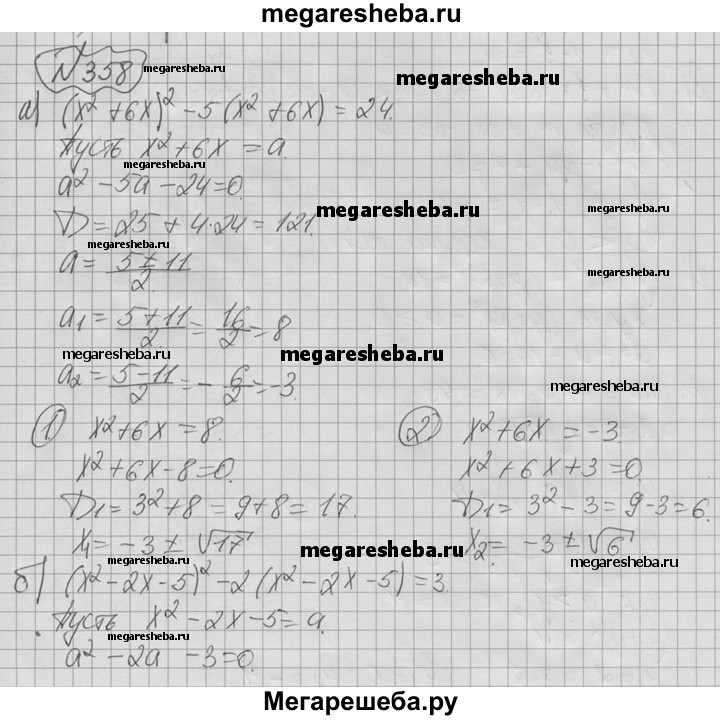 megaresheba.ru
№358 megaresheba.ru
megaresheba.ru
а) (x² + 6x)² - 5 (x² + 6x) = 24.
Пусть x² + 6x = a.
megaresheba.ru megaresheba.ru
a² - 5a - 24 = 0.
megaresheba.ru megaresheba.ru
D = 25 + 4·24 = 121.
megaresheba.ru
a = (5 ± 11)/2.
megaresheba.ru
a₁ = (5 + 11)/2 = 16/2 = 8
megaresheba.ru megaresheba.ru
a₂ = (5 - 11)/2 = - 6/2 = -3.
megaresheba.ru
1) x² + 6x = 8.
x² + 6x - 8 = 0.
D₁ = 3² + 8 = 9 + 8 = 17.
x₁ = -3 ± √17
2) x² + 6x = -3.
x² + 6x + 3 = 0
D₁ = 3² - 3 = 9 - 3 = 6.
x₂ = -3 ± √6
megaresheba.ru megaresheba.ru megaresheba.ru
б) (x² - 2x - 5)² - 2 (x² - 2x - 5) = 3.
megaresheba.ru
Пусть x² - 2x - 5 = a.
megaresheba.ru megaresheba.ru
a² - 2a - 3 = 0.
Мегарешеба.ру